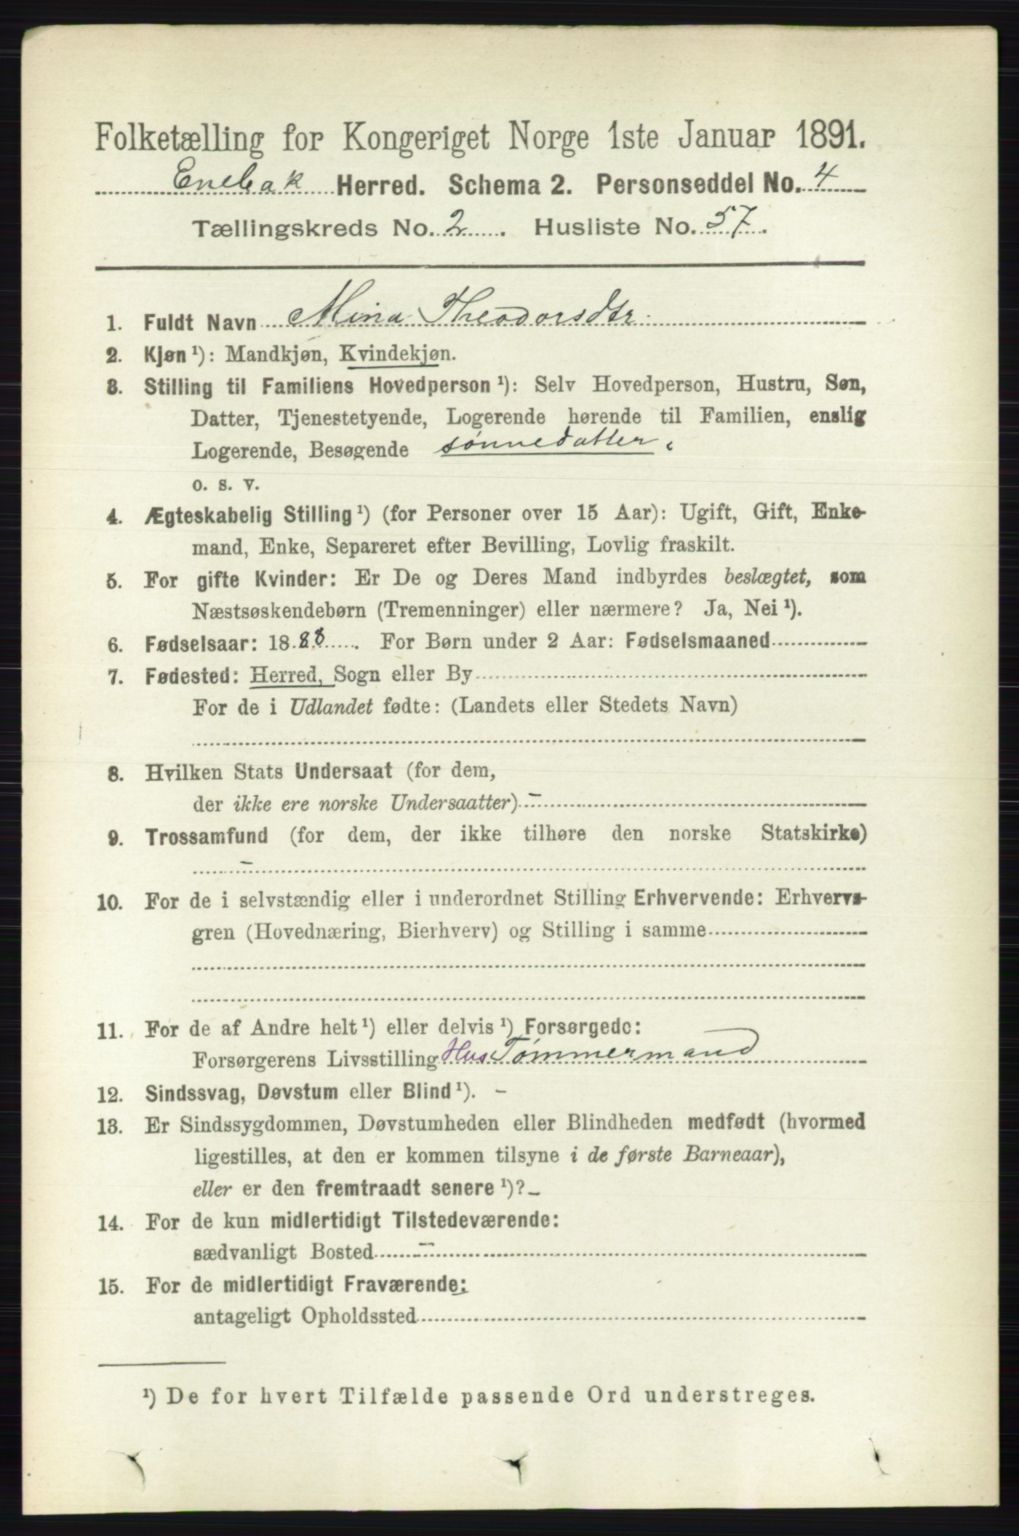 Folketælling for Kongeriget Norge 1ste Januar 1891.
Enebak Herred. Schema 2. Personseddel No. 4
Tællingskreds No. 2. Husliste No. 57.
1. Fuldt Navn Mina Theodorsdtr.
2. Kjøn ¹): Mandkjøn, Kvindekjøn.
3. Stilling til Familiens Hovedperson ¹): Selv Hovedperson, Hustru, Søn,
Datter, Tjenestetyende, Logerende hørende til Familien, enslig
Logerende, Besøgende sønnedatter.
o. s. v.
4. Ægteskabelig Stilling ¹) (for Personer over 15 Aar): Ugift, Gift, Enke-
mand, Enke, Separeret efter Bevilling, Lovlig fraskilt.
5. For gifte Kvinder: Er De og Deres Mand indbyrdes beslægtet, som
Næstsøskendebørn (Tremenninger) eller nærmere? Ja, Nei ¹).
6. Fødselsaar: 1888. For Børn under 2 Aar: Fødselsmaaned
7. Fødested: Herred, Sogn eller By
For de i Udlandet fødte: (Landets eller Stedets Navn)
8. Hvilken Stats Undersaat (for dem,
der ikke ere norske Undersaatter) –
9. Trossamfund (for dem, der ikke tilhøre den norske Statskirke)
–
10. For de i selvstændig eller i underordnet Stilling Erhvervende: Erhvervs-
gren (Hovednæring, Bierhverv) og Stilling i samme
11. For de af Andre helt ¹) eller delvis ¹) Forsørgede:
Forsørgerens Livsstilling Hus Tømmermand
12. Sindssvag, Døvstum eller Blind ¹). –
13. Er Sindssygdommen, Døvstumheden eller Blindheden medfødt (hvormed
ligestilles, at den er kommen tilsyne i de første Barneaar),
eller er den fremtraadt senere ¹)? –
14. For de kun midlertidigt Tilstedeværende:
sædvanligt Bosted –
15. For de midlertidigt Fraværende:
antageligt Opholdssted
¹) De for hvert Tilfælde passende Ord understreges.